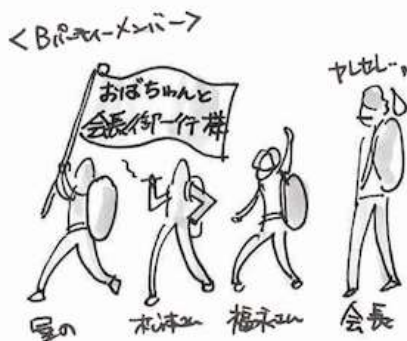 <Bパーティーメンバー>
おばちゃんと
会長御一行様
ヤレヤレ…
星の
松本さん
福永さん
会長